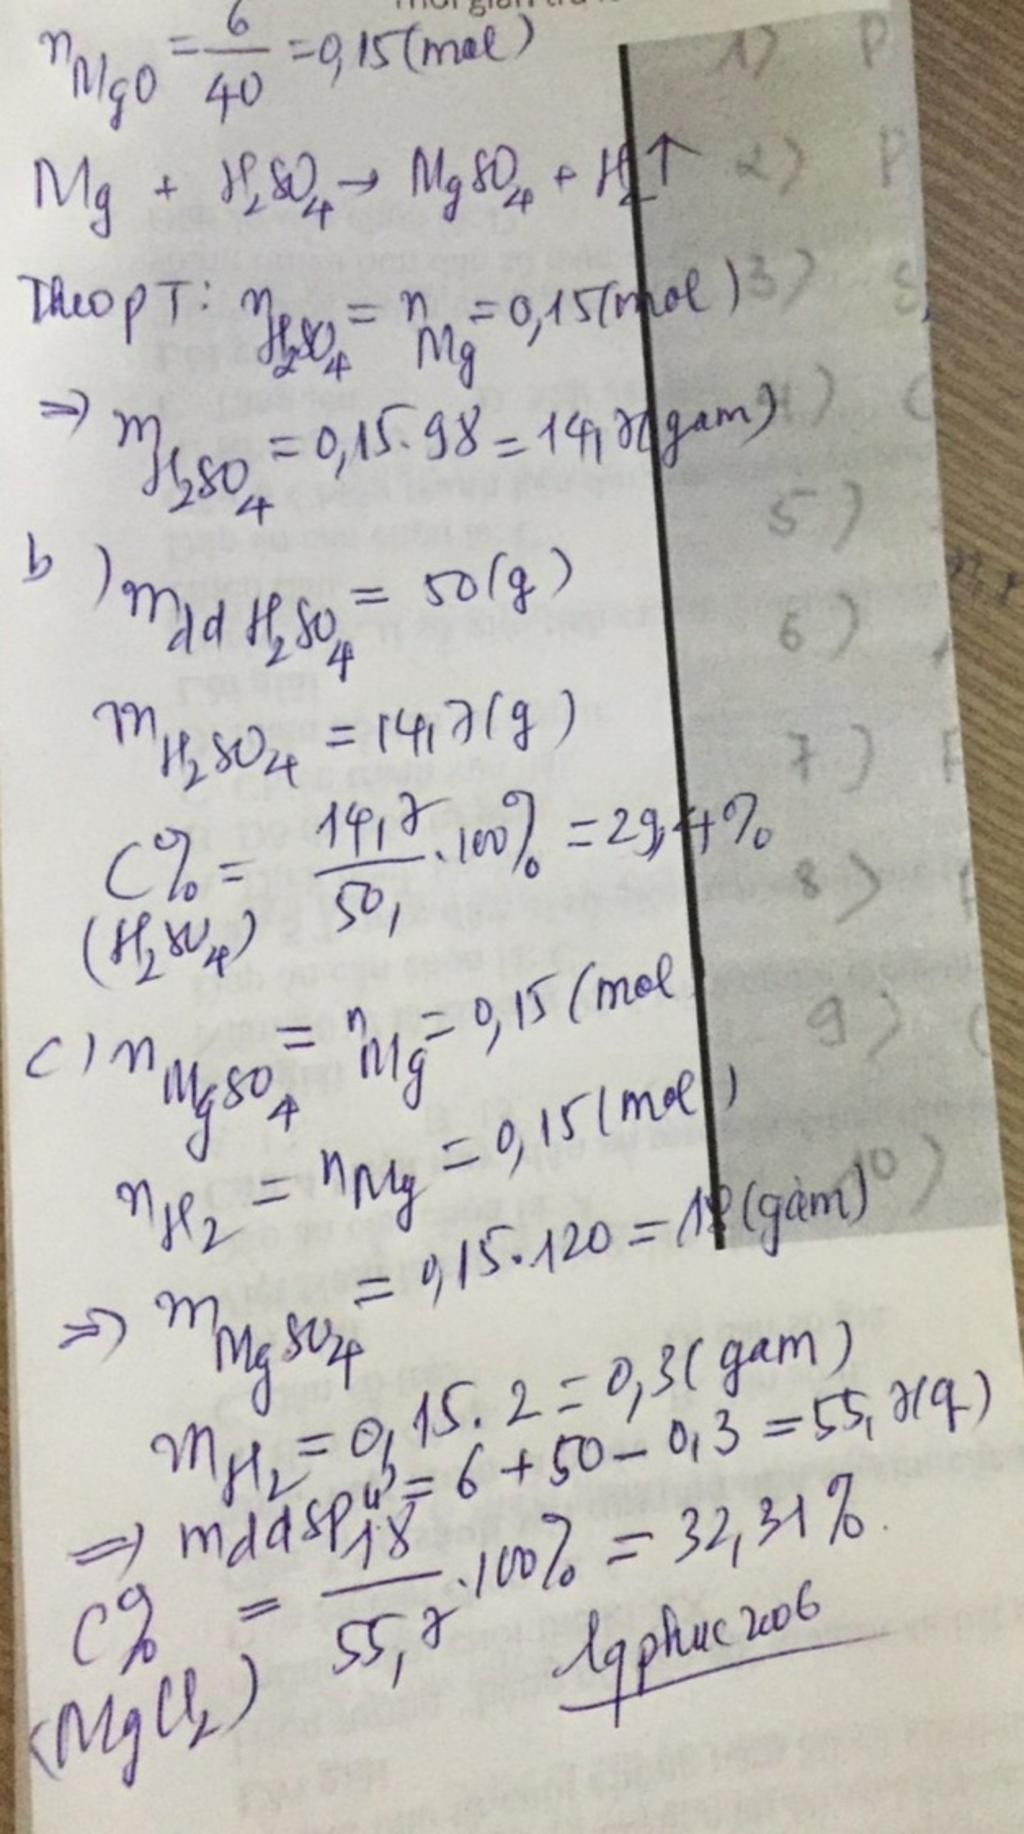 n MgO = 6/40 = 0,15 (mol)
Mg + H2SO4 → MgSO4 + H2↑
Theo pT: n H2SO4 = n Mg = 0,15 (mol)
=> m H2SO4 = 0,15.98 = 14,7 (gam)
b) m dd H2SO4 = 50 (g)
m H2SO4 = 14,7 (g)
C% (H2SO4) = 14,7/50, .100% = 29,4%
c) n MgSO4 = n Mg = 0,15 (mol
n H2 = n Mg = 0,15 (mol)
=> m MgSO4 = 0,15.120 = 18 (gam)
m H2 = 0,15.2 = 0,3 (gam)
=> mddspứ = 6 + 50 - 0,3 = 55,7 (g)
C% (MgCl2) = 18/55,7 .100% = 32,31%.
lqphuc2006
1) P
2) P
3) S
4) C
5)
6)
7) F
8)
9) C
10)